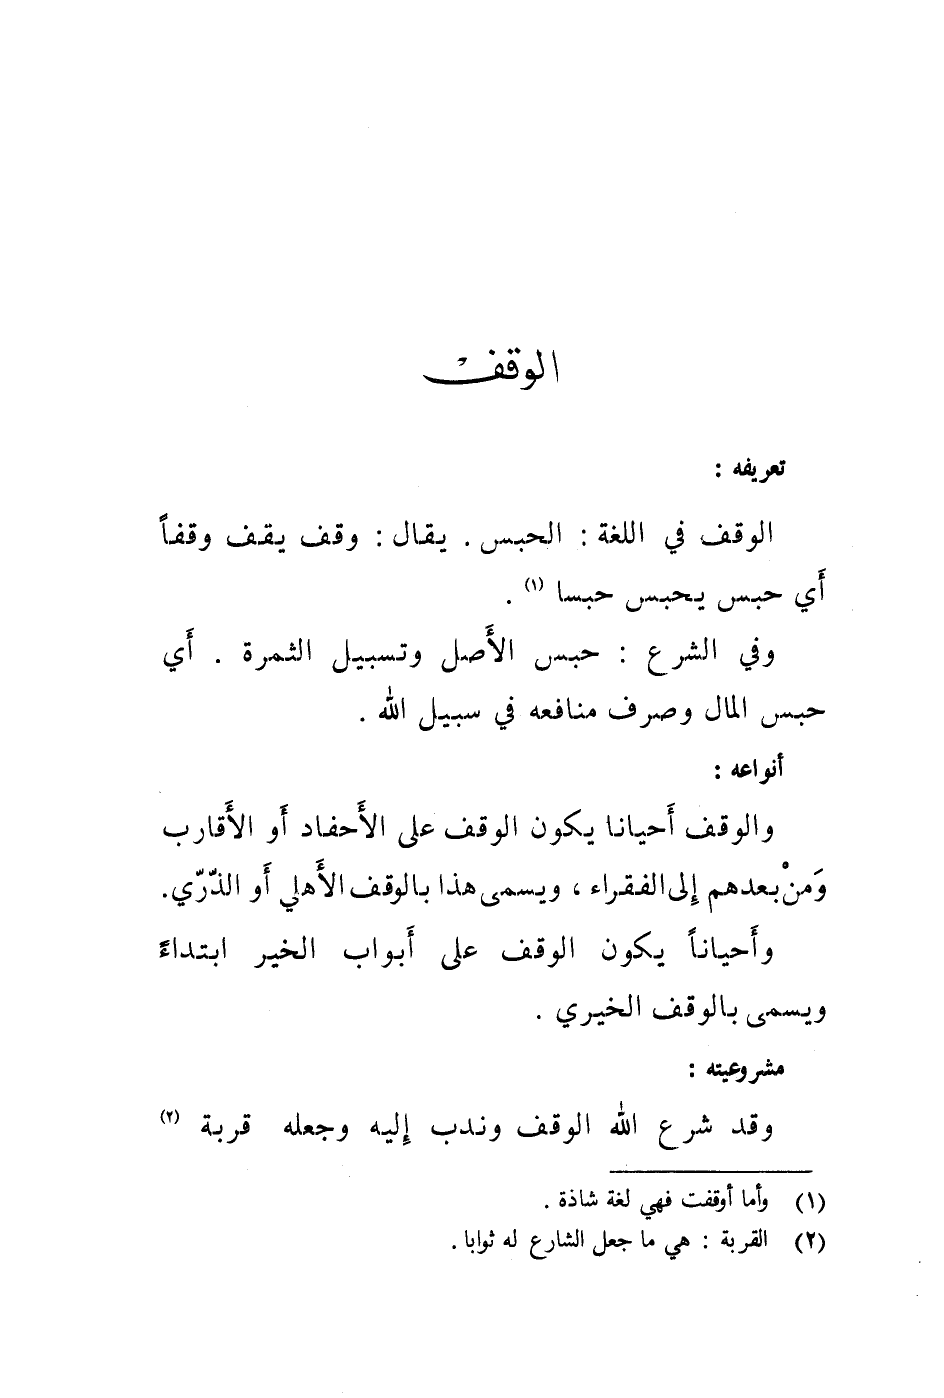 الوقف
تعريفه :
الوقف في اللغة : الحبس . يقال : وقف يقف وقفاً
أَي حبس يحبس حبسا (١) .
وفي الشرع : حبس الأَصل وتسبيل الثمرة . أَي
حبس المال وصرف منافعه في سبيل الله .
أنواعه :
والوقف أَحيانا يكون الوقف على الأَحفاد أَو الأَقارب
وَمنْ بعدهم إِلى الفقراء ، ويسمى هذا بالوقف الأَهلي أَو الذّرّي .
وأَحياناً يكون الوقف على أَبواب الخير ابتداءً
ويسمى بالوقف الخيري .
مشروعيته :
وقد شرع الله الوقف وندب إِليه وجعله قربة (٢)
(١) وأما أوقفت فهي لغة شاذة .
(٢) القربة : هي ما جعل الشارع له ثوابا .